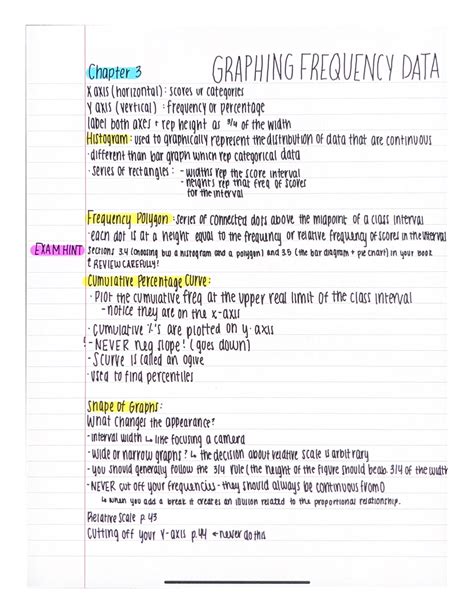 Chapter 3 GRAPHING FREQUENCY DATA
X axis (horizontal): scores or categories
Y axis (vertical): frequency or percentage
label both axes + rep height as 3/4 of the width
Histogram: used to graphically represent the distribution of data that are continuous
·different than bar graph which rep categorical data
·series of rectangles: - widths rep the score interval
- heights rep that freq of scores
for the interval
Frequency Polygon: series of connected dots above the midpoint of a class interval
·each dot is at a height equal to the frequency or relative frequency of scores in the interval
EXAM HINT sections 3.4 (choosing b/w a histogram and a polygon) and 3.5 (the bar diagram + pie chart) in your book
& REVIEW CAREFULLY!
Cumulative Percentage Curve:
· Plot the cumulative freq at the upper real limit of the class interval
- notice they are on the x-axis
· cumulative %'s are plotted on y-axis
! - NEVER neg slope! (goes down)
- S curve is called an ogive
· used to find percentiles
Shape of Graphs:
What changes the appearance?
· interval width ↳ like focusing a camera
· wide or narrow graphs? ↳ the decision about relative scale is arbitrary
· you should generally follow the 3/4 rule (the height of the figure should be abo 3/4 of the width
· NEVER cut off your frequencies - they should always be continuous from 0
↳ when you add a break it creates an illusion related to the proportional relationship.
Relative Scale p. 43
Cutting off your Y-axis p. 44 ← never do this